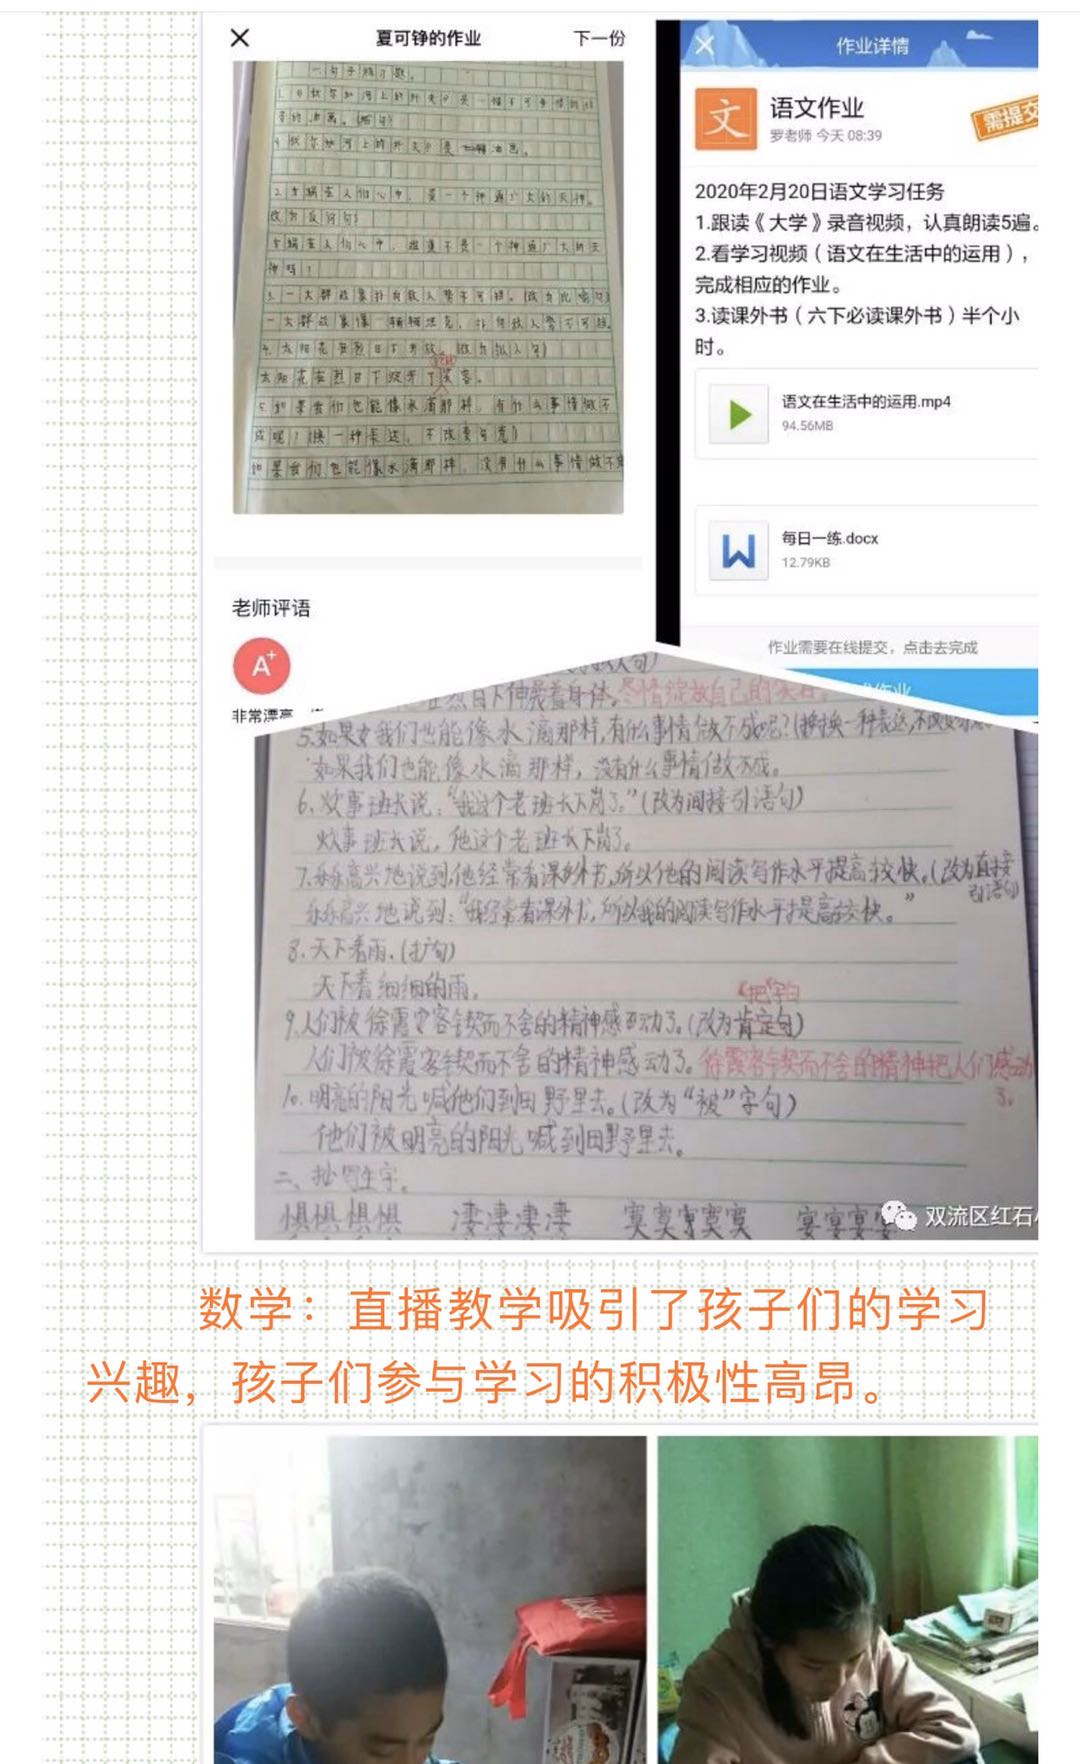 夏可铮的作业
下一份
1.《伏尔加河上的纤夫》是一幅不可多得的
4.太阳花在烈日下开放。(改为拟人句)
太阳花在烈日下绽开了笑容。
5.如果我们也能像水滴那样,有什么事情做不
成呢?(换一种表达,不改变句意)
如果我们也能像水滴那样,没有什么事情做不
老师评语
A+
非常漂亮
作业详情
文
语文作业
需提交
罗老师 今天 08:39
2020年2月20日语文学习任务
1.跟读《大学》录音视频，认真朗读5遍。
2.看学习视频（语文在生活中的运用），
完成相应的作业。
3.读课外书（六下必读课外书）半个小
时。
语文在生活中的运用.mp4
94.56MB
每日一练.docx
12.79KB
作业需要在线提交，点击去完成
5.如果我们也能像水滴那样,有什么事情做不成呢?(换一种表达,不改变句意
如果我们也能像水滴那样，没有什么事情做不成。
6、炊事班长说：“我这个老班长下岗了。”(改为间接引语句)
炊事班长说，他这个老班长下岗了。
7.乐乐高兴地说到,他经常看课外书,所以他的阅读写作水平提高较快。(改为直接
引语句)
乐乐高兴地说到：“我经常看课外书,所以我的阅读写作水平提高较快。”
8.天下着雨.(扩句)
天下着细细的雨。
“把”字句
9.人们被徐霞客锲而不舍的精神感动了。(改为肯定句)
人们被徐霞客锲而不舍的精神感动了。徐霞客锲而不舍的精神把人们感动
了。
10.明亮的阳光喊他们到田野里去。(改为“被”字句)
他们被明亮的阳光喊到田野里去。
二、抄写生字。
惧惧惧惧 凄凄凄凄 寞寞寞寞寞 宴宴宴
双流区红石
数学：直播教学吸引了孩子们的学习
兴趣，孩子们参与学习的积极性高昂。